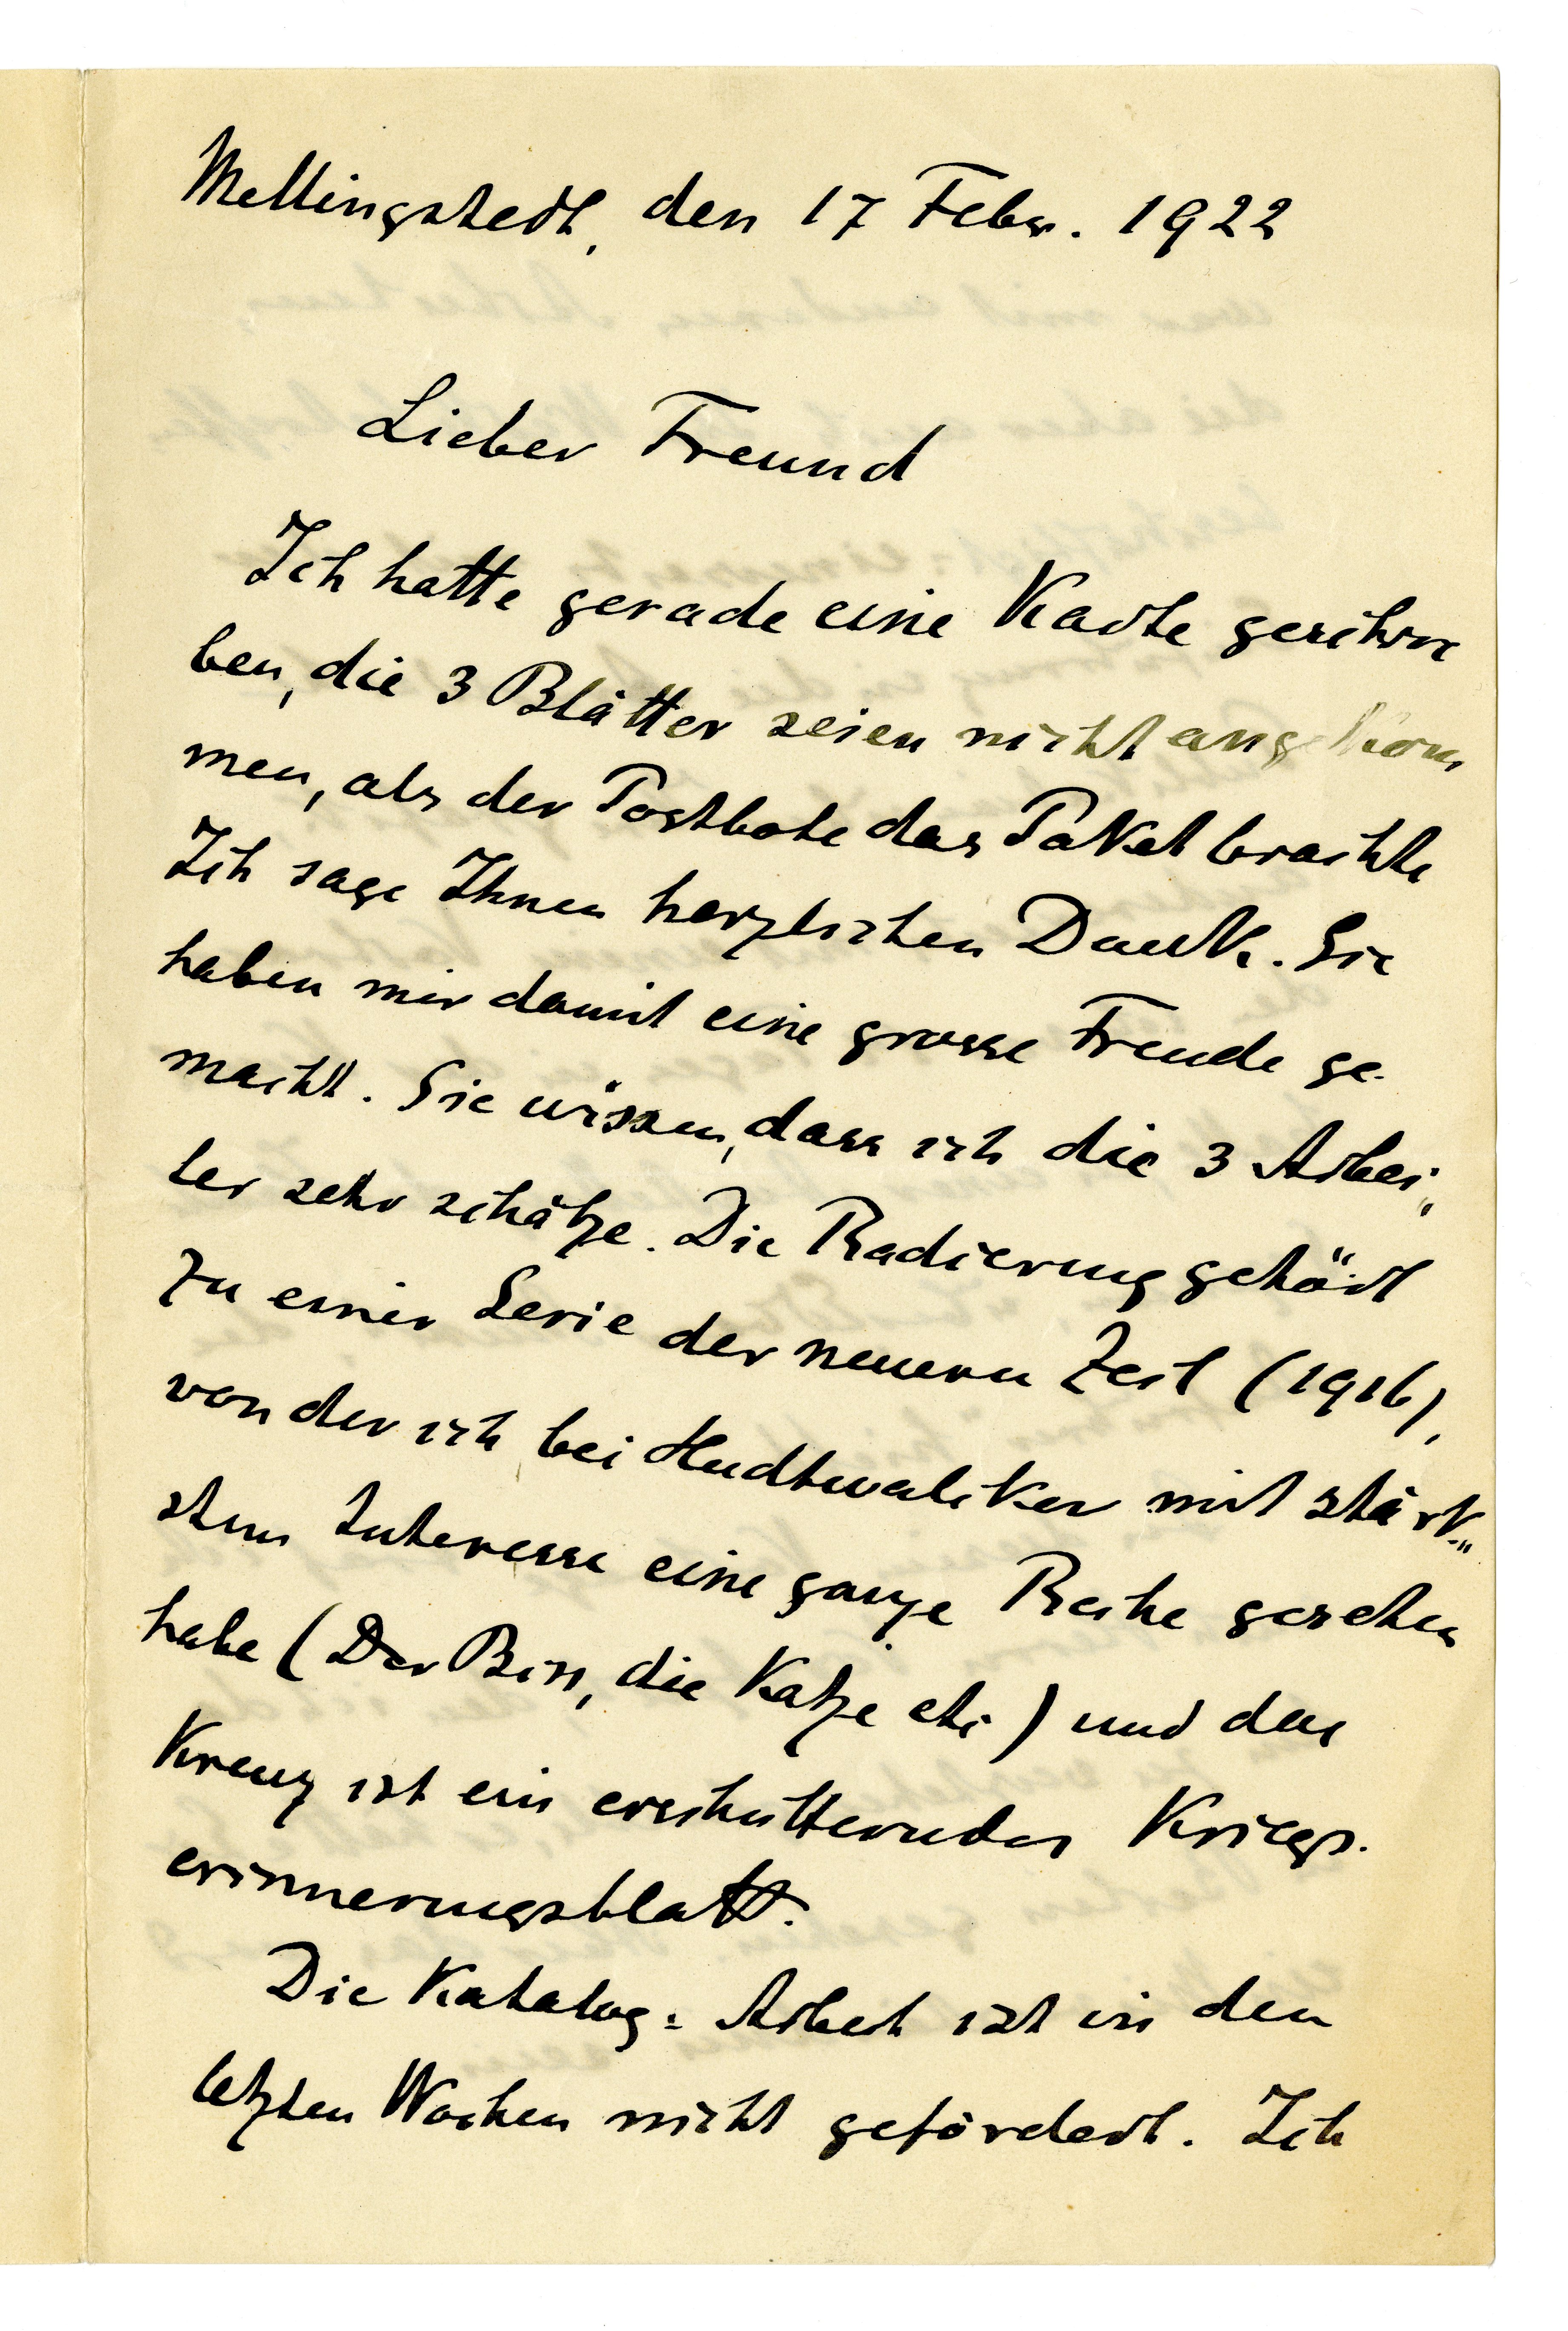 Mellingstedt, den 17 Febr. 1922
Lieber Freund
Ich hatte gerade eine Karte geschrie
ben, die 3 Blätter seien nicht angekom
men, als der Postbote das Paket brachte
Ich sage Ihnen herzlichen Dank. Sie
haben mir damit eine grosse Freude ge-
macht. Sie wissen, dass ich die 3 Arbei„
ter sehr schätze. Die Radierung gehört
zu einer Serie der neuern Zeit (1916),
von der ich bei Hudtwalcker mit stärk„
stem Interesse eine ganze Reihe gesehen
habe (Der Biss, die Katze etc) und das
Kreuz ist ein erschutterndes Kriegs-
erinnerungsblatt.
Die Katalog= Arbeit ist in den
letzten Wochen nicht gefördert. Ich